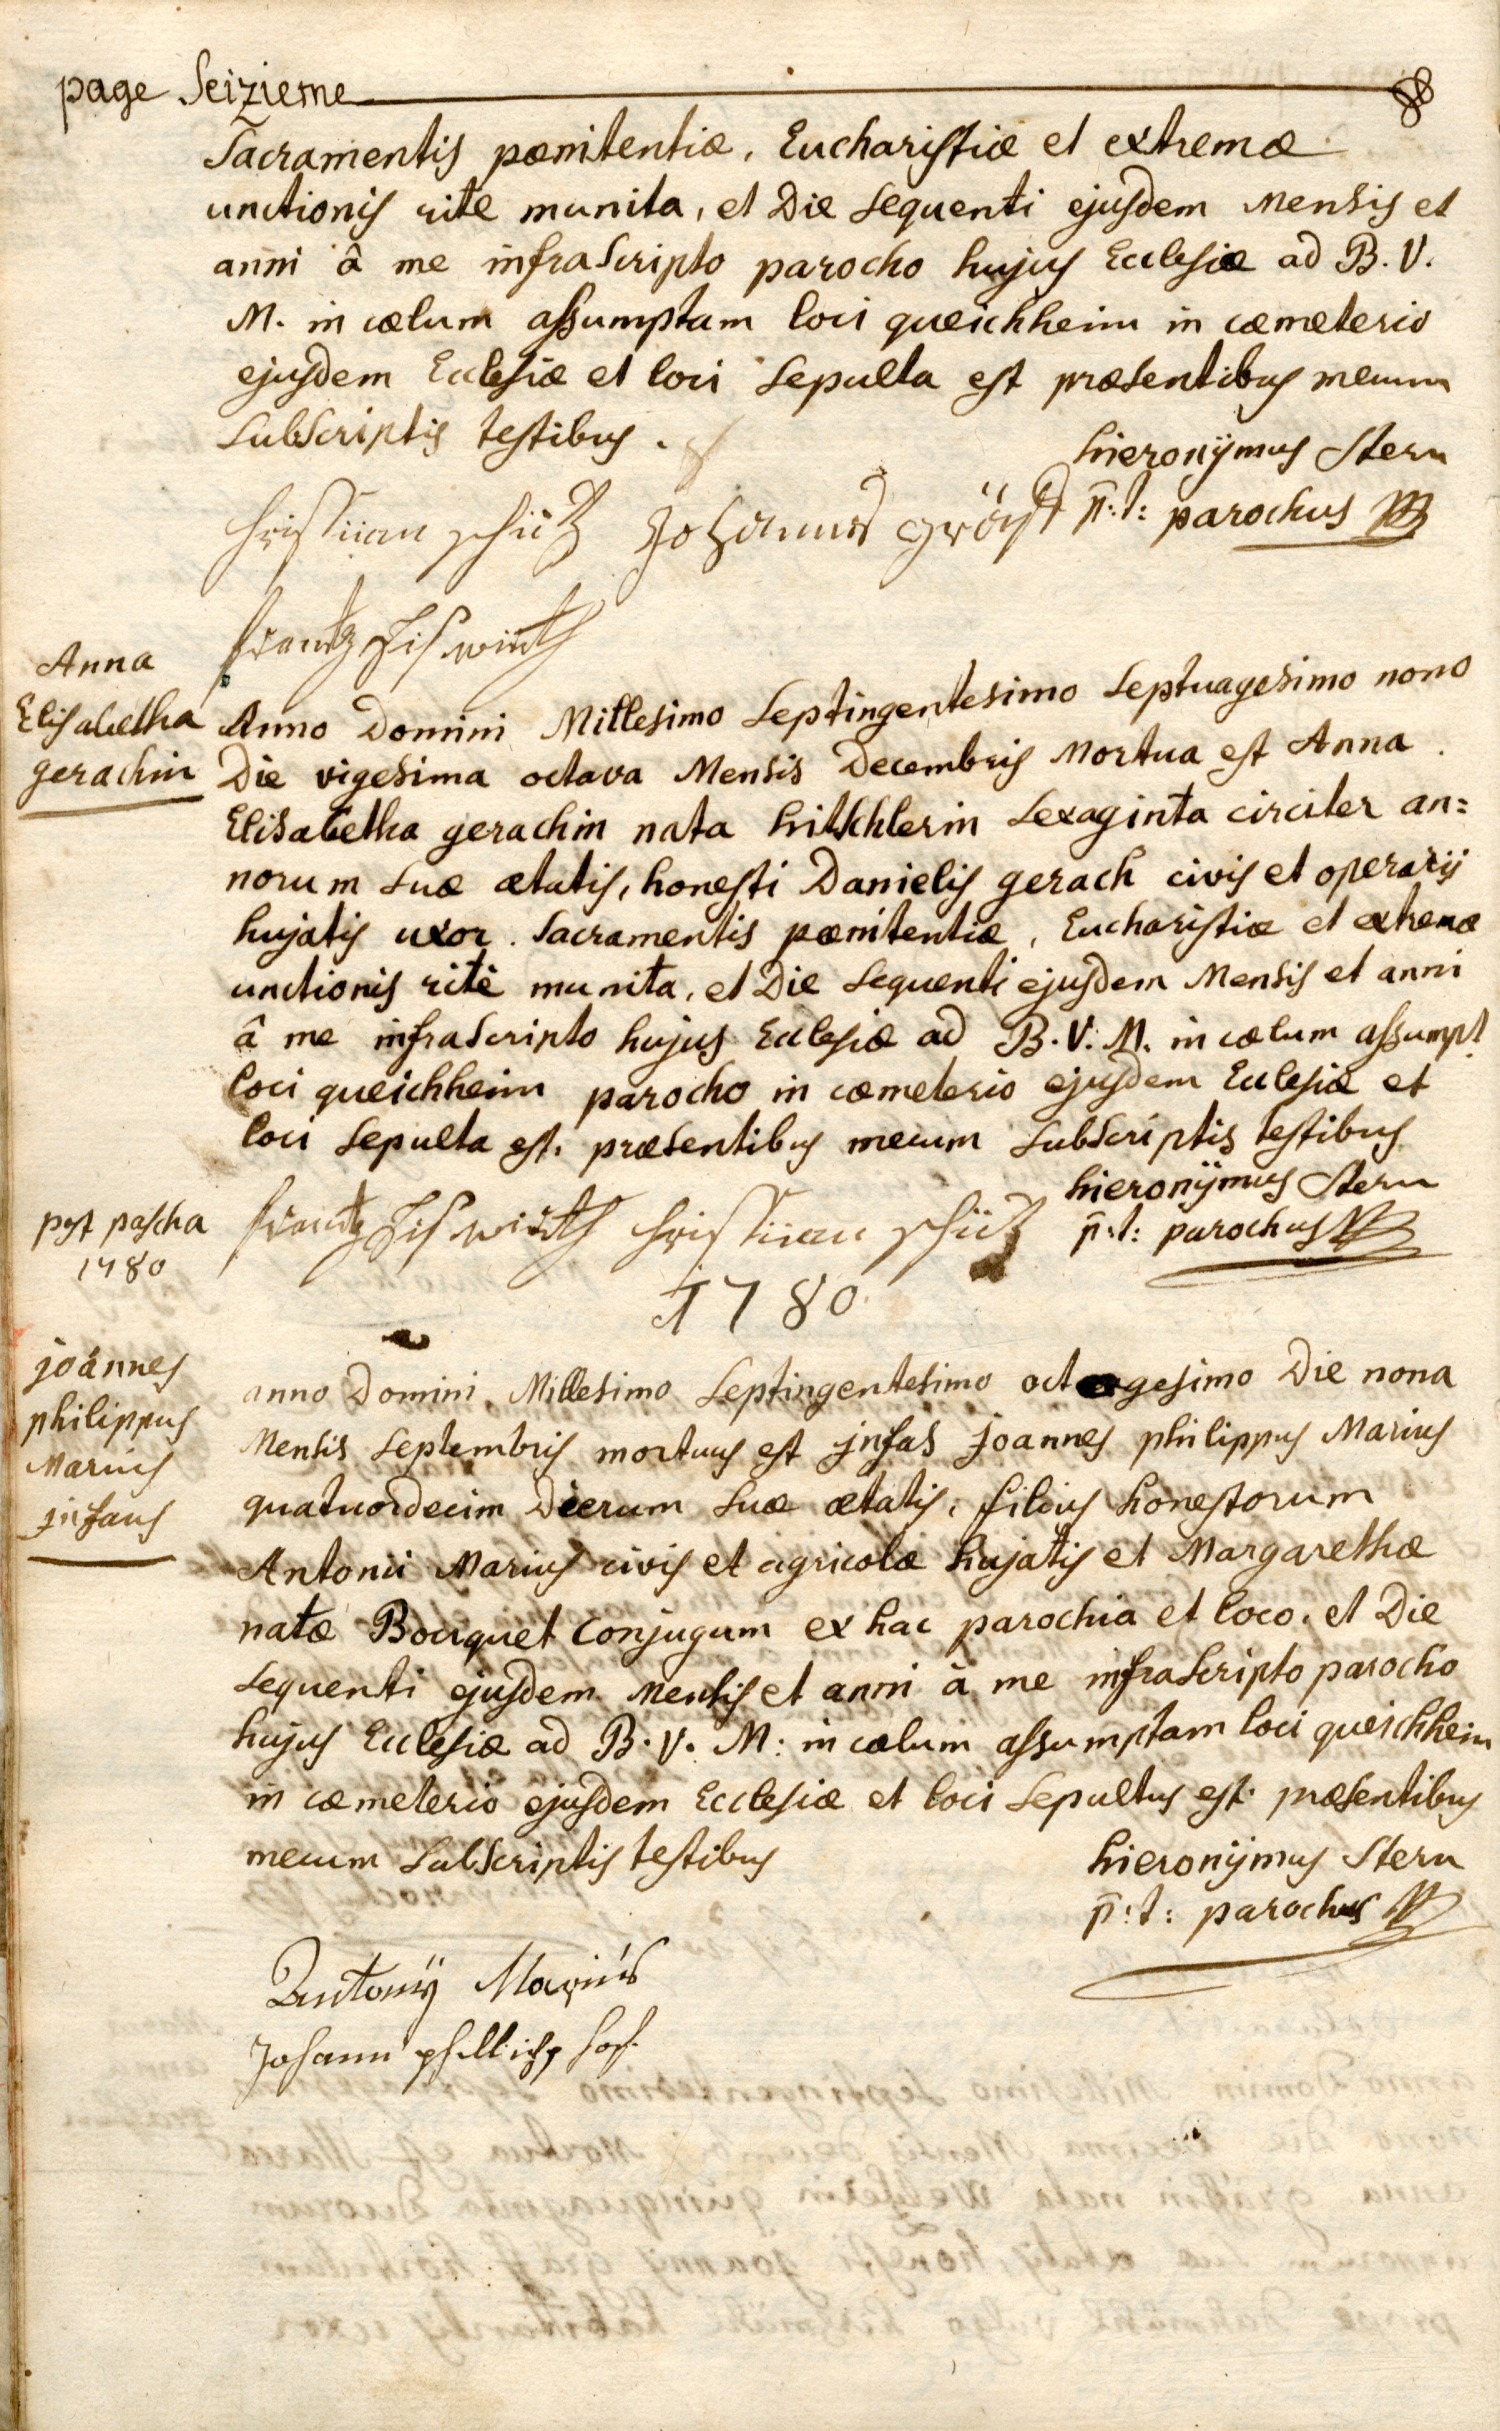 page Seizieme
Sacramentis pœnitentiæ, Eucharistiæ et extremæ
unctionis rite munita, et Die Sequenti ejusdem Mensis et
anni â me infraScripto parocho hujus Ecclesiæ ad B. V.
M. in cœlum assumptam loci queichheim in cœmeterio
ejusdem Ecclesiæ et loci Sepulta est præsentibus mecum
SubScriptis testibus.
hieronÿmus Stern
p̄:t: parochus
Christian schütz Johannes
frantz
Anna
Elisabetha
gerachin
Anno Domini Millesimo Septingentesimo Septuagesimo nono
Die vigesima octava Mensis Decembris Mortua est Anna
Elisabetha gerachin nata hitschlerin Sexaginta circiter an=
norum Suæ ætatis, honesti Danielis gerach civis et operarij
hujatis uxor. Sacramentis pœnitentiæ, Eucharistiæ et extremæ
unctionis rite munita, et Die Sequenti ejusdem Mensis et anni
â me infraScripto hujus Ecclesiæ ad B. V. M. in cœlum assumpt
loci queichheim parocho in cœmeterio ejusdem Ecclesiæ et
loci Sepulta est. præsentibus mecum SubScriptis testibus
hieronÿmus Stern
frantz Christian schütz p̄:t: parochus
post pascha
1780
1780
joannes
philippus
Marius
jnfans
anno Domini Millesimo Septingentesimo octogesimo Die nona
Mensis Septembris mortuus est jnfas joannes philippus Marius
quatuordecim Dierum Suæ ætatis, filius honestorum
Antonii Marius civis et agricolæ hujatis et Margarethæ
natæ Bouquet Conjugum ex hac parochia et loco. et Die
Sequenti ejusdem Mensis et anni à me infraScripto parocho
hujus Ecclesiæ ad B. V. M: in cœlum assumptam loci queichheim
in cœmeterio ejusdem Ecclesiæ et loci Sepultus est. præsentibus
mecum SubScriptis testibus
hieronÿmus Stern
p̄:t: parochus
Antonÿ Marius
Johann